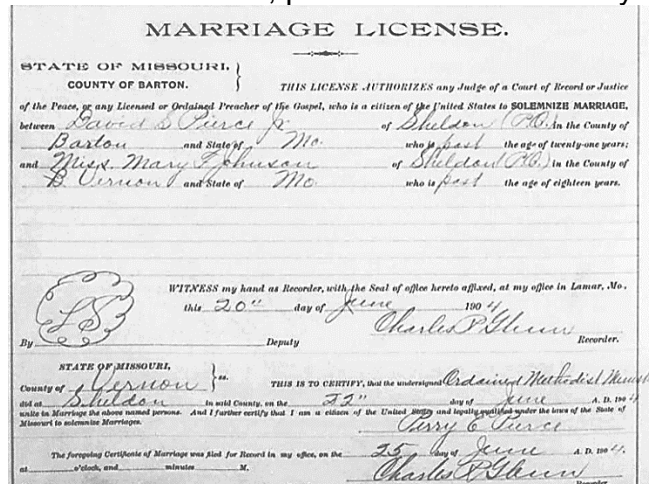 MARRIAGE LICENSE.
STATE OF MISSOURI,
COUNTY OF BARTON.
THIS LICENSE AUTHORIZES any Judge of a Court of Record or Justice
of the Peace, or any Licensed or Ordained Preacher of the Gospel, who is a citizen of the United States to SOLEMNIZE MARRIAGE,
between David S Pierce Jr. of Sheldon (P.O.) in the County of
Barton and State of Mo. who is past the age of twenty-one years;
and Miss Mary F Johnson of Sheldon (P.O.) in the County of
B Vernon and State of Mo. who is past the age of eighteen years.
WITNESS my hand as Recorder, with the Seal of office hereto affixed, at my office in Lamar, Mo.,
this 20" day of June 1904
LS
Charles P. Glenn
By Deputy Recorder.
STATE OF MISSOURI,
County of Vernon ss. THIS IS TO CERTIFY, that the undersigned Ordained Methodist
did at Sheldon in said County, on the 22" day of June A. D. 1904
unite in Marriage the above named persons. And I further certify that I am a citizen of the United States and legally qualified under the laws of the State of
Missouri to solemnize Marriages. Perry E Pierce
The foregoing Certificate of Marriage was filed for Record in my office, on the 25 day of June A. D. 1904.
at o'clock, and minutes M. Charles P. Glenn
Recorder